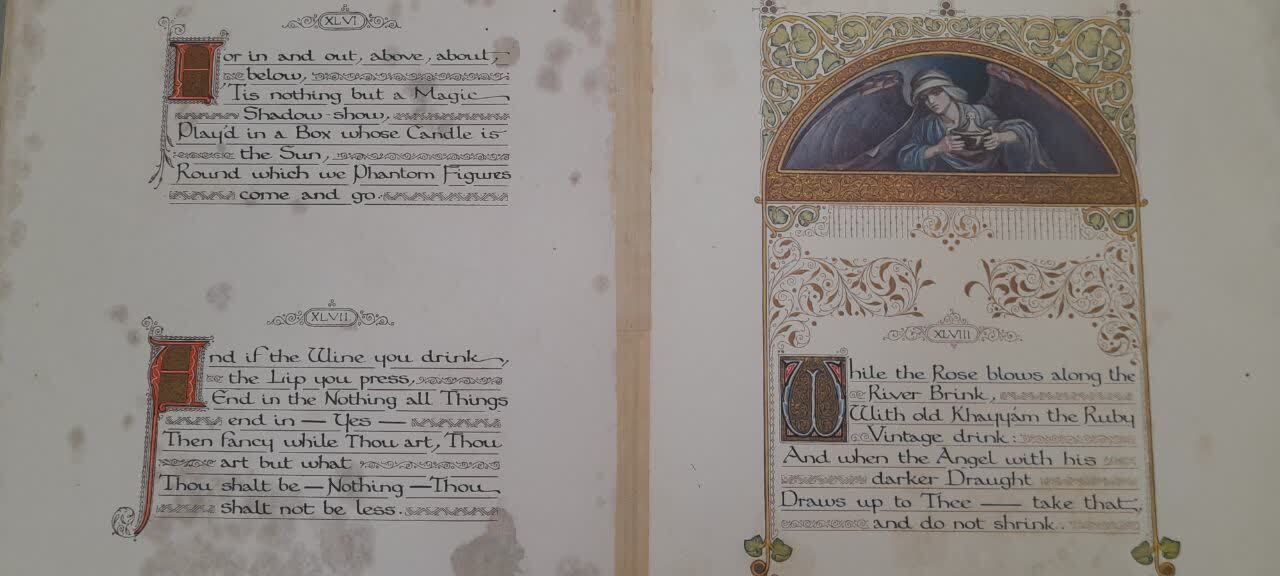 XLVI
For in and out, above, about,
below,
'Tis nothing but a Magic
Shadow-show,
Play'd in a Box whose Candle is
the Sun,
Round which we Phantom Figures
come and go.
XLVII
And if the Wine you drink,
the Lip you press,
End in the Nothing all Things
end in — Yes —
Then fancy while Thou art, Thou
art but what
Thou shalt be — Nothing — Thou
shalt not be less.
XLVIII
While the Rose blows along the
River Brink,
With old Khayyám the Ruby
Vintage drink:
And when the Angel with his
darker Draught
Draws up to Thee — take that,
and do not shrink.